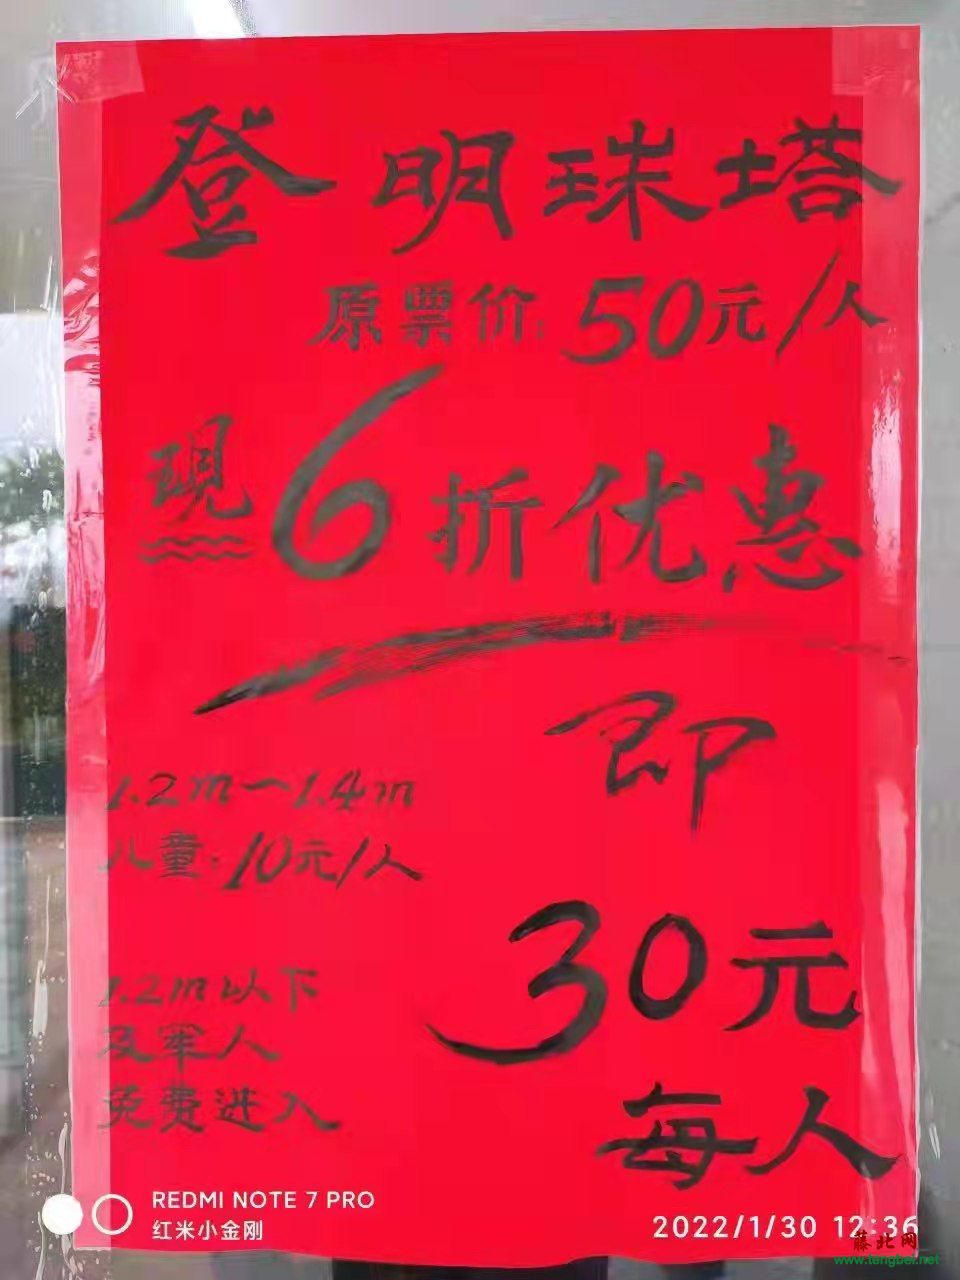 登明珠塔
原票价:50元/人
现6折优惠
即
1.2m—1.4m
儿童:10元/人
30元
1.2m以下
及军人
免费进入
每人
REDMI NOTE 7 PRO
红米小金刚
2022/1/30 12:36
藤北网
www.tengbei.net